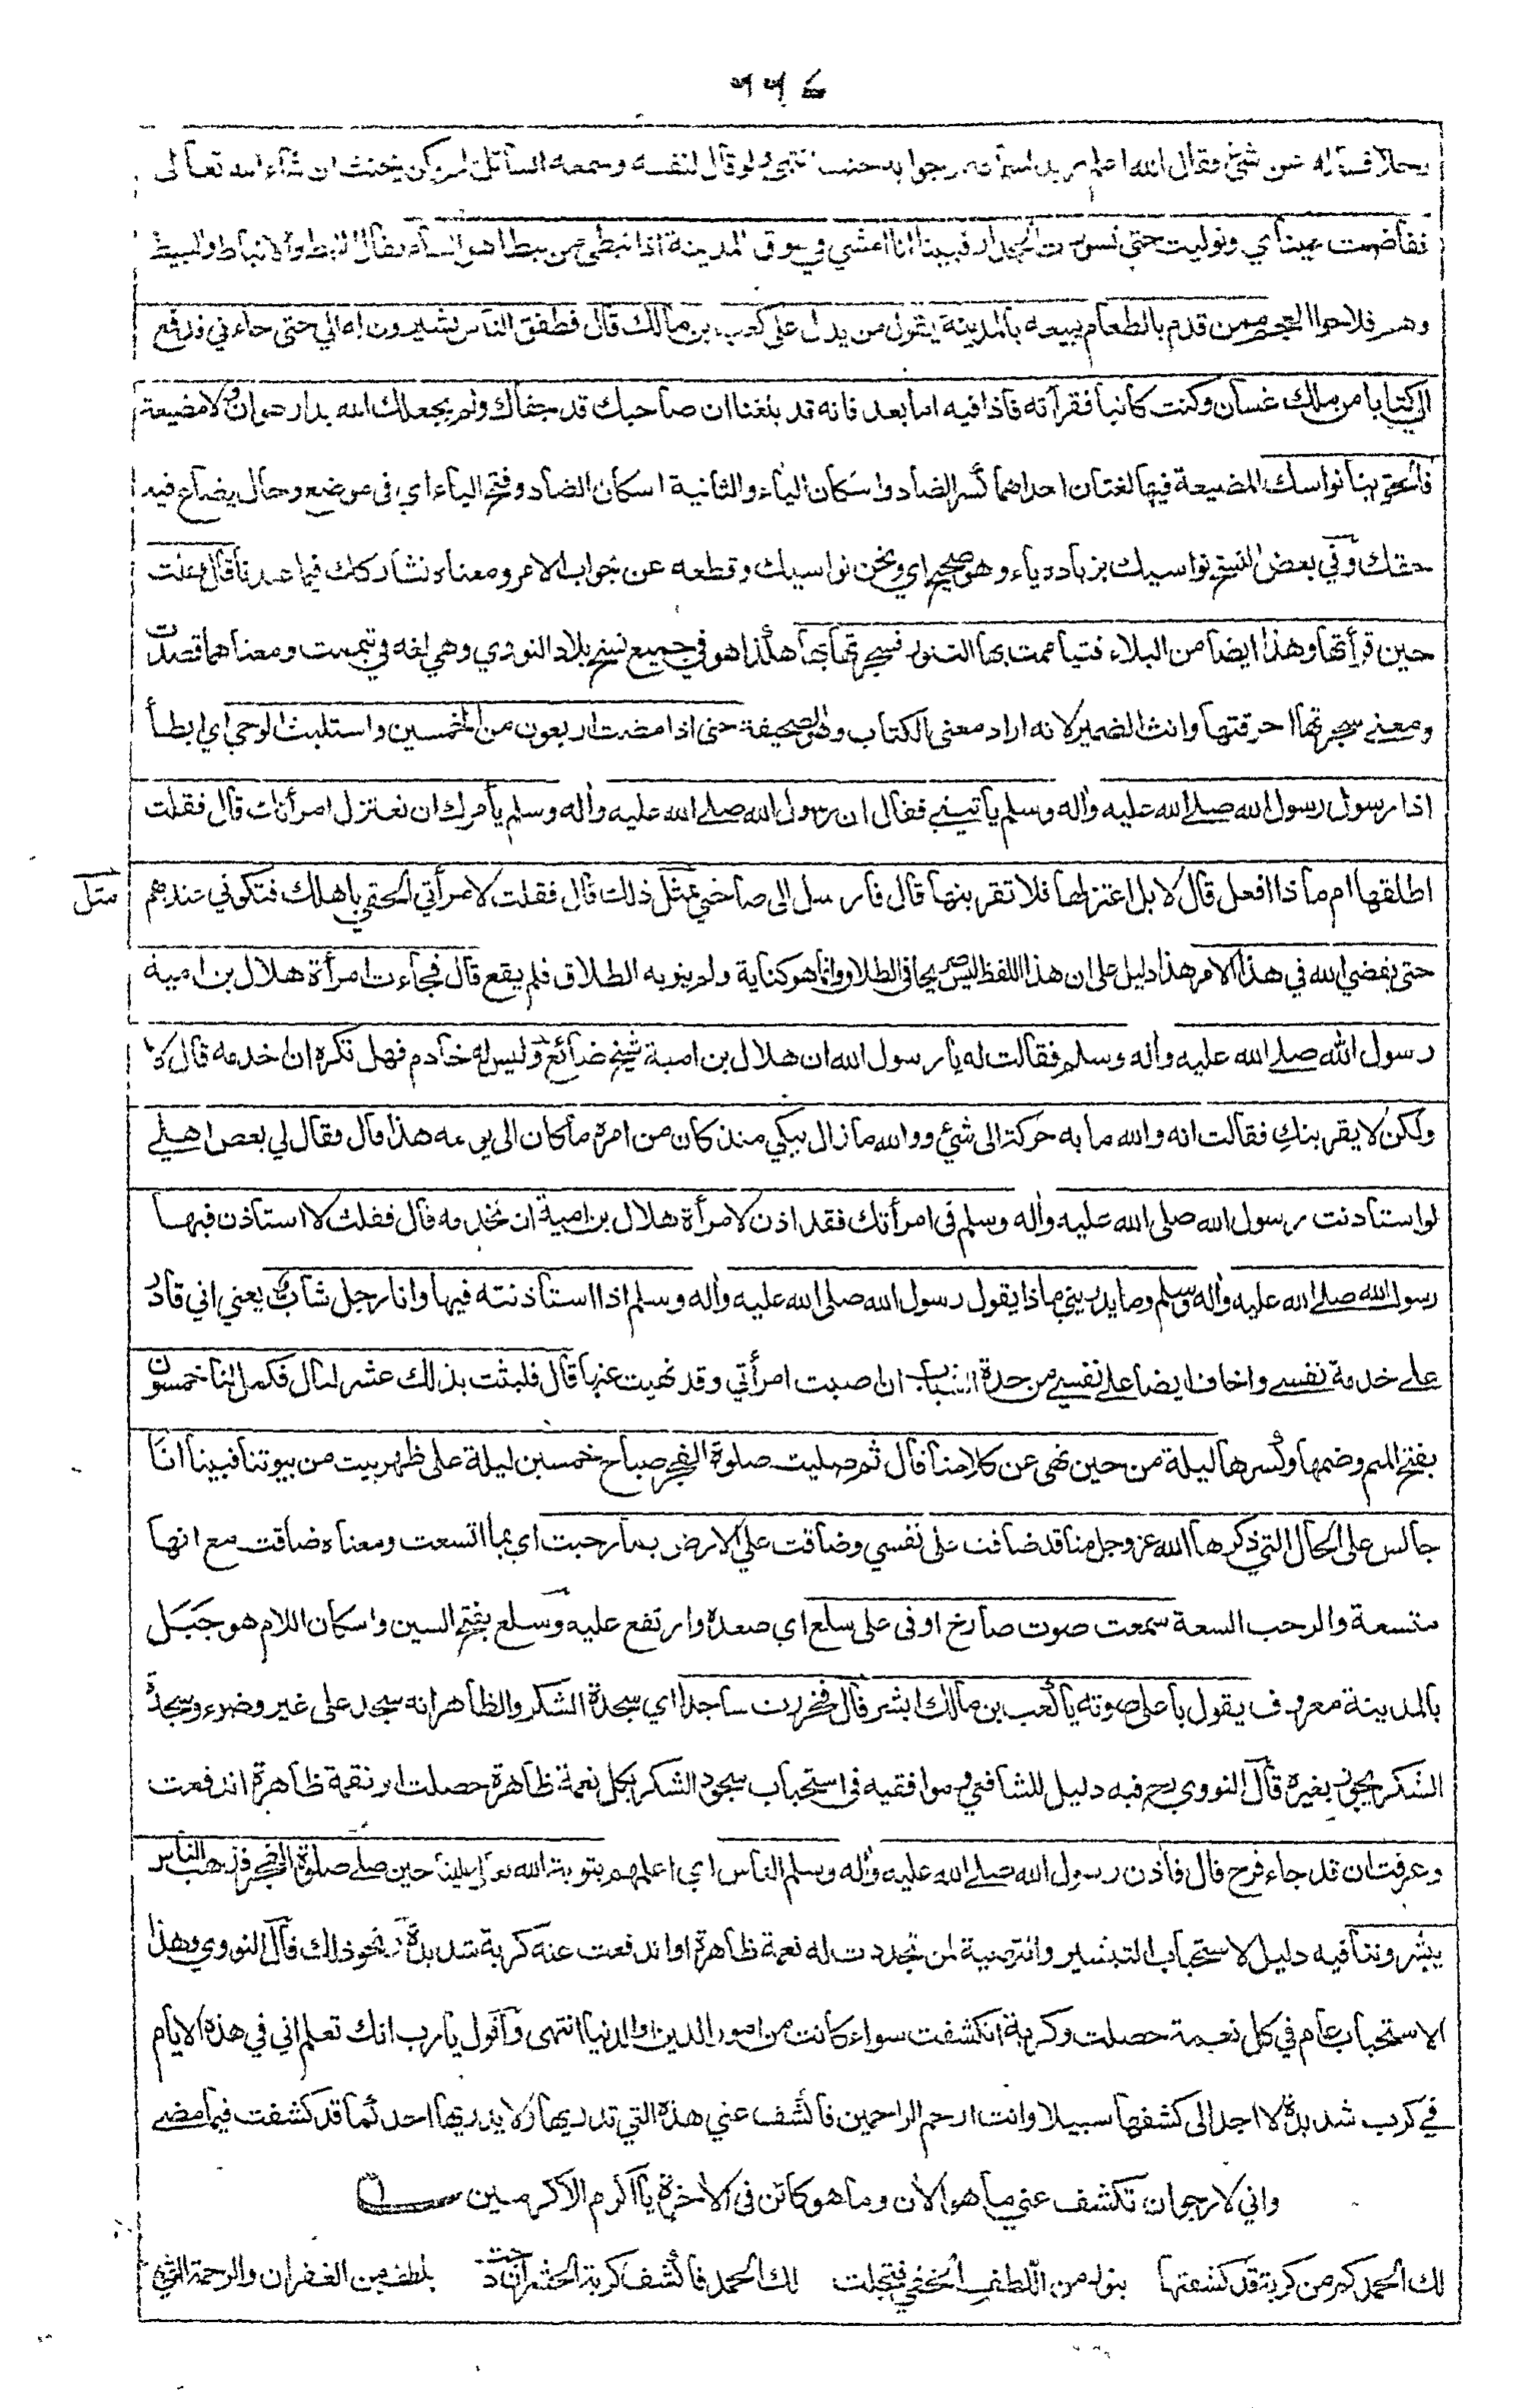 ۷۷۶
رجلا فسأله عن شئ فقال الله اعلم يريد اسماعه لا جوابه حنث ولو قال لنفسه وسمعه السائل لم يكن يحنث ان شاء الله تعالى
ففاضت عيناي وتوليت حتى تسورت الجدار فبينا انا امشي في سوق المدينة اذا نبطي من نبط اهل الشام يقال النبط والانباط والنبيط
وهم فلاحوا العجم ممن قدم بالطعام يبيعه بالمدينة يقول من يدل على كعب بن مالك قال فطفق الناس يشيرون له الي حتى جاءني فدفع
الي كتابا من ملك غسان وكنت كاتبا فقرأته فاذا فيه اما بعد فانه قد بلغنا ان صاحبك قد جفاك ولم يجعلك الله بدار هوان ولا مضيعة
فالحق بنا نواسك المضيعة فيها لغتان احداهما كسر الضاد واسكان الياء والثانية اسكان الضاد وفتح الياء اي في موضع وحال يضاع فيه
حقك وفي بعض النسخ نواسيك بزيادة ياء وهو صحيح اي ونحن نواسيك وقطعه عن جواب الامر ومعناه نشاركك فيما عندنا قال فقلت
حين قرأتها وهذا ايضا من البلاء فتياممت بها التنور فسجرتها بها هكذا هو في جميع نسخ بلاد النووي وهي لغة في تيممت ومعناهما قصدت
ومعنى سجرتها احرقتها وانث الضمير لانه اراد معنى الكتاب وهو الصحيفة حتى اذا مضت اربعون من الخمسين واستلبث الوحي اي ابطأ
اذا رسول رسول الله صلى الله عليه واله وسلم يأتيني فقال ان رسول الله صلى الله عليه واله وسلم يأمرك ان تعتزل امرأتك قال فقلت
اطلقها ام ماذا افعل قال لا بل اعتزلها فلا تقربنها قال فارسل الى صاحبي بمثل ذلك قال فقلت لامرأتي الحقي باهلك فتكوني عندهم
مثل
حتى يقضي الله في هذا الامر هذا دليل على ان هذا اللفظ ليس صريحا في الطلاق وانما هو كناية ولم ينو به الطلاق فلم يقع قال فجاءت امرأة هلال بن امية
رسول الله صلى الله عليه واله وسلم فقالت له يا رسول الله ان هلال بن امية شيخ ضائع وليس له خادم فهل تكره ان اخدمه قال لا
ولكن لا يقربنك فقالت انه والله ما به حركة الى شئ ووالله ما زال يبكي منذ كان من امره ما كان الى يومه هذا قال فقال لي بعض اهلي
لو استأذنت رسول الله صلى الله عليه واله وسلم في امرأتك فقد اذن لامرأة هلال بن امية ان تخدمه قال فقلت لا استأذن فيها
رسول الله صلى الله عليه واله وسلم وما يدريني ماذا يقول رسول الله صلى الله عليه واله وسلم اذا استأذنته فيها وانا رجل شاب يعني اني قادر
على خدمة نفسي واخاف ايضا على نفسي من حدة الشباب ان اصبت امرأتي وقد نهيت عنها قال فلبثت بذلك عشر ليال فكمل لنا خمسون
بفتح الميم وضمها وكسرها ليلة من حين نهى عن كلامنا قال ثم صليت صلوة الفجر صباح خمسين ليلة على ظهر بيت من بيوتنا فبينا انا
جالس على الحال التي ذكرها الله عز وجل منا قد ضاقت علي نفسي وضاقت علي الارض بما رحبت اي بما اتسعت ومعناه ضاقت مع انها
متسعة والرحب السعة سمعت صوت صارخ اوفى على سلع اي صعده وارتفع عليه وسلع بفتح السين واسكان اللام هو جبل
بالمدينة معروف يقول باعلى صوته يا كعب بن مالك ابشر قال فخررت ساجدا اي سجدة الشكر والظاهر انه سجد على غير وضوء وسجدة
الشكر يجوز بغيره قال النووي رح فيه دليل للشافعي وموافقيه في استحباب سجود الشكر بكل نعمة ظاهرة حصلت او نقمة ظاهرة اندفعت
وعرفت ان قد جاء فرج قال فأذن رسول الله صلى الله عليه واله وسلم الناس اي اعلمهم بتوبة الله علينا حين صلى صلوة الفجر فذهب الناس
يبشروننا فيه دليل لاستحباب التبشير والتهنية لمن تجددت له نعمة ظاهرة او اندفعت عنه كربة شديدة ونحو ذلك قال النووي وهذا
الاستحباب عام في كل نعمة حصلت وكربة انكشفت سواء كانت من امور الدين او الدنيا انتهى واقول يا رب انك تعلم اني في هذه الايام
في كرب شديدة لا اجد الى كشفها سبيلا وانت ارحم الراحمين فاكشف عني هذه التي تدريها ولا يدريها احد كما قد كشفت فيما مضى
واني لارجو ان تكشف عني ما هو الان وما هو كائن في الاخرة يا اكرم الاكرمين
لك الحمد كم من كربة قد كشفتها بنول من اللطف الخفي فتجلت لك الحمد فاكشف كربة الحشر ان دجت بلطف من الغفران والرحمة التي